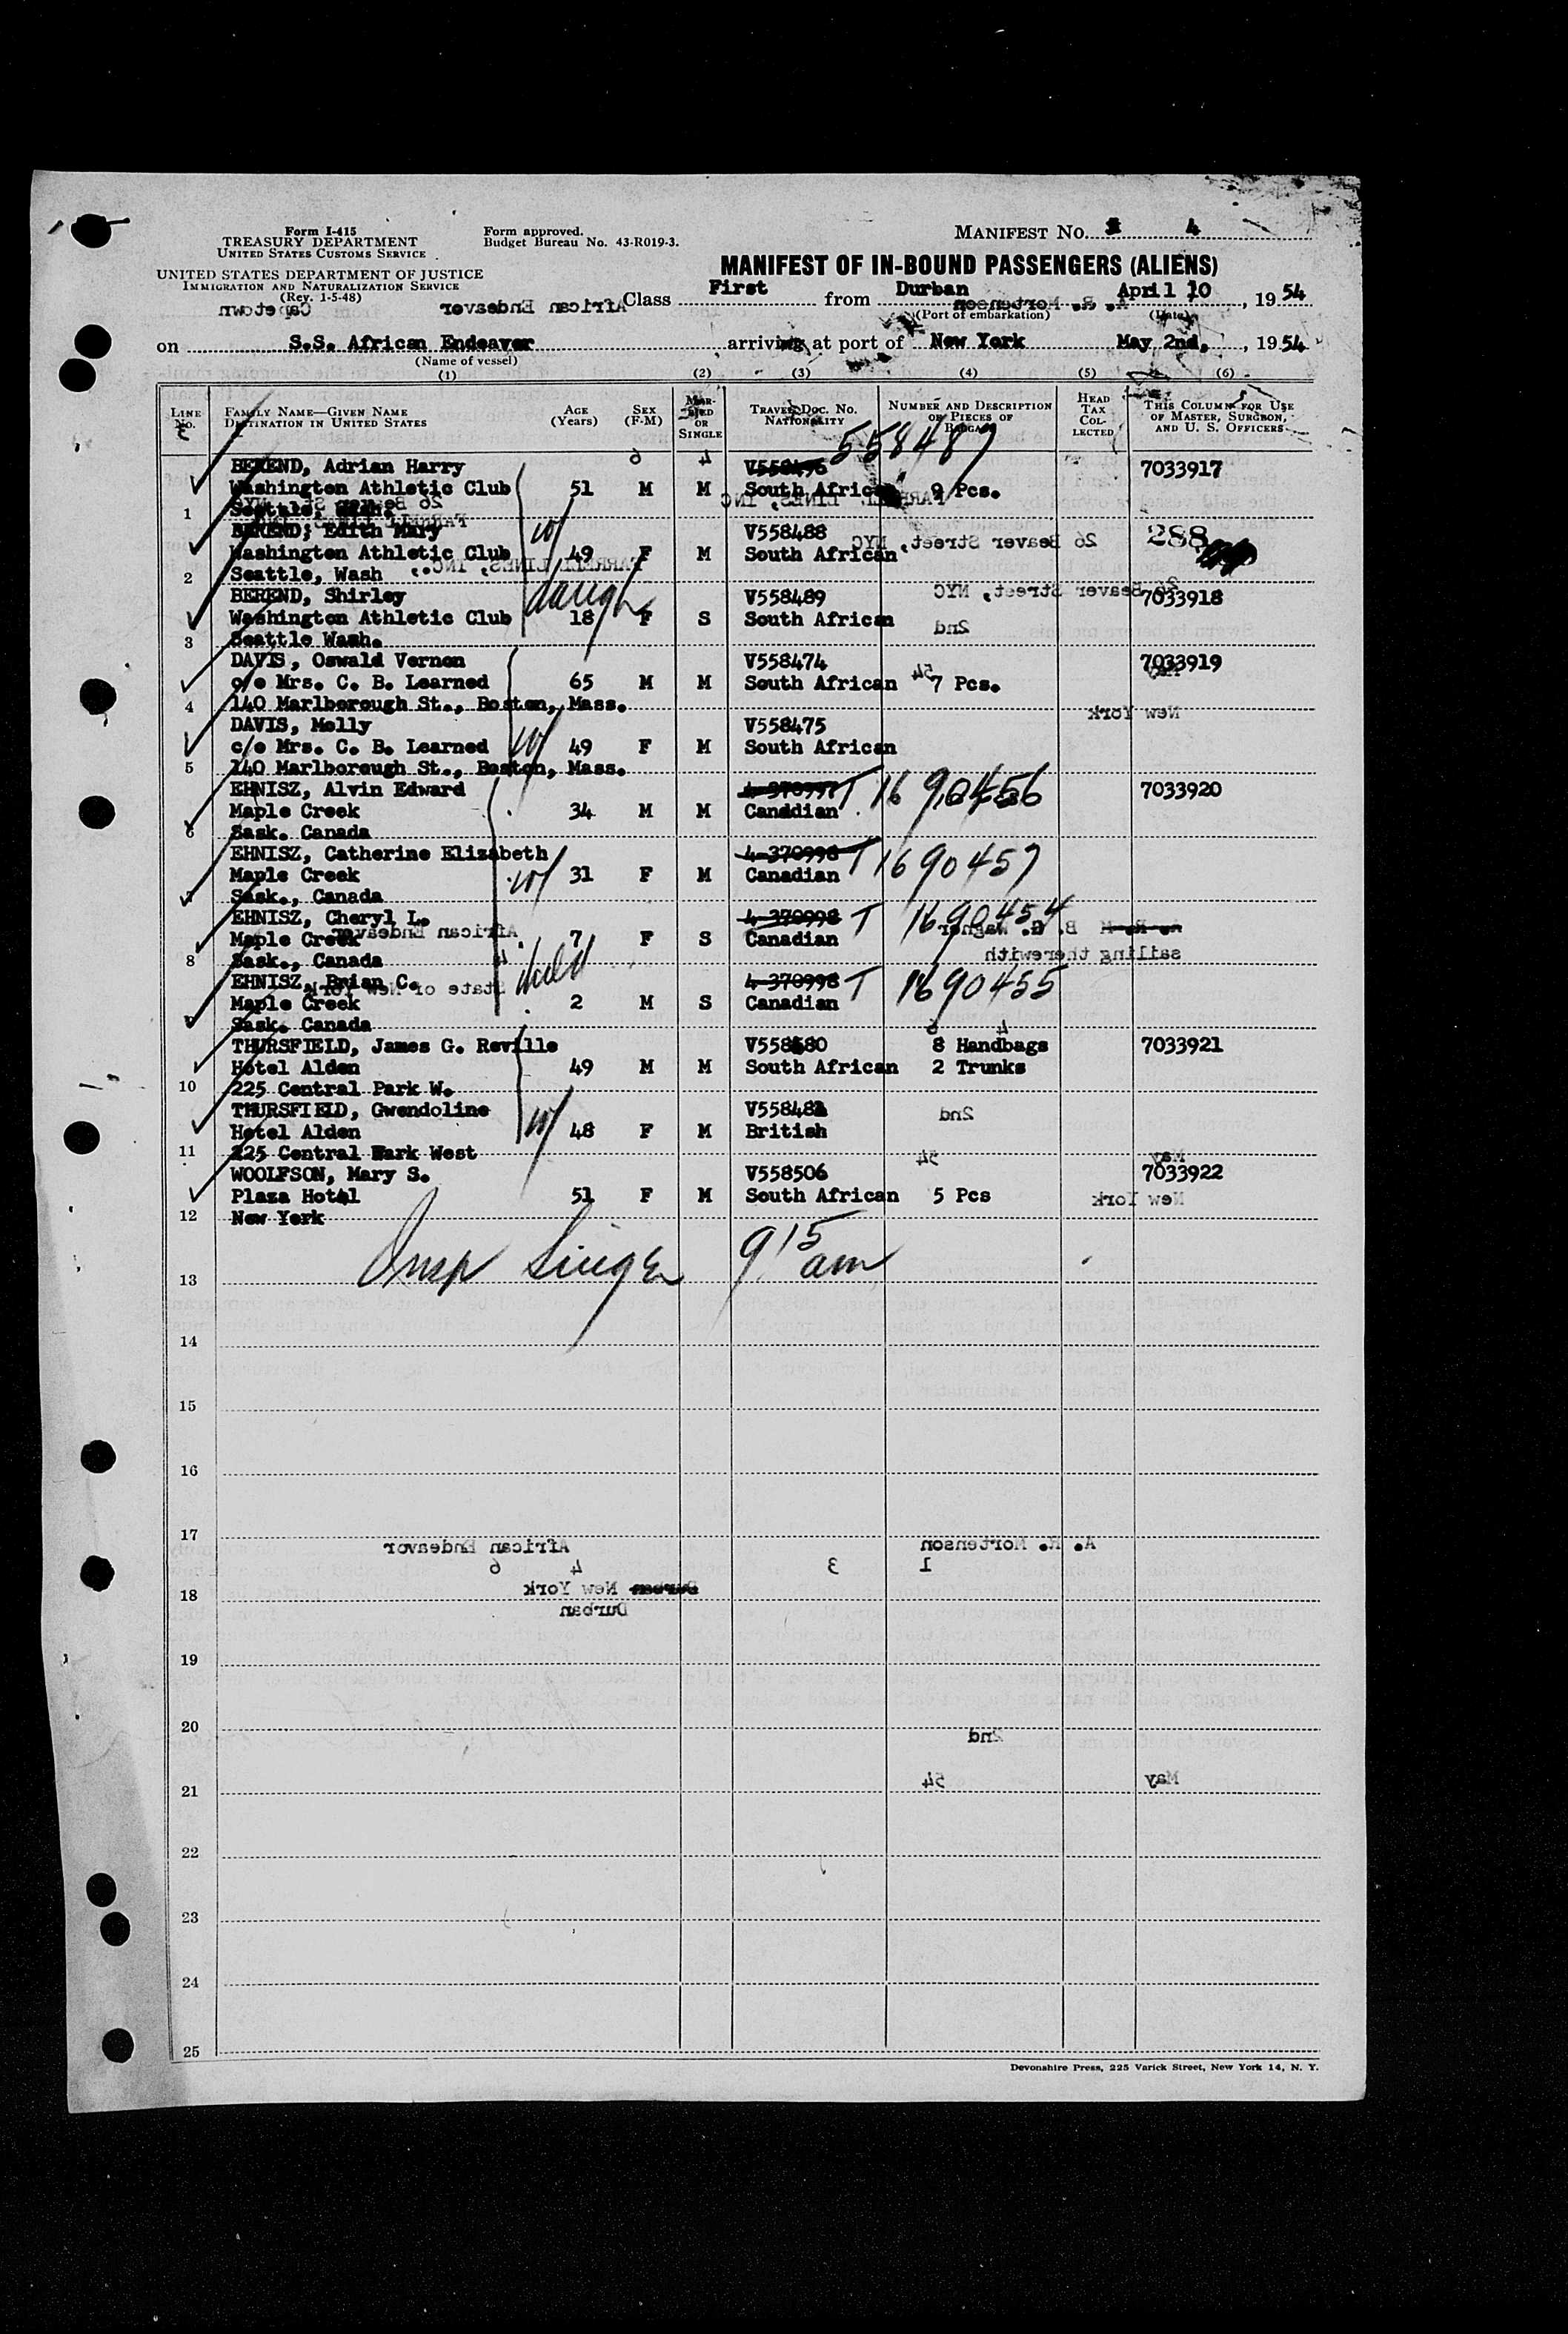 Form I-415
TREASURY DEPARTMENT
UNITED STATES CUSTOMS SERVICE
Form approved.
Budget Bureau No. 43-R019-3.
MANIFEST No. 4
UNITED STATES DEPARTMENT OF JUSTICE
IMMIGRATION AND NATURALIZATION SERVICE
(Rev. 1-5-48)
MANIFEST OF IN-BOUND PASSENGERS (ALIENS)
Class First from Durban April 10, 1954
(Port of embarkation) (Date)
on S.S. African Endeavor arriving at port of New York May 2nd, 1954
(Name of vessel)
(1) (2) (3) (4) (5) (6)
LINE No. FAMILY NAME—GIVEN NAME DESTINATION IN UNITED STATES AGE (Years) SEX (F-M) MARRIED OR SINGLE TRAVEL DOC. No. NATIONALITY NUMBER AND DESCRIPTION OF PIECES OF BAGGAGE HEAD TAX COLLECTED THIS COLUMN FOR USE OF MASTER, SURGEON, AND U. S. OFFICERS
BEREND, Adrian Harry V558496 558487 7033917
Washington Athletic Club 51 M M South African 9 Pcs.
1 Seattle, Wash.
BEREND, Edith Mary w/ V558488 288
Washington Athletic Club 49 F M South African
2 Seattle, Wash
BEREND, Shirley daugh V558489 7033918
Washington Athletic Club 18 F S South African
3 Seattle Wash.
DAVIS, Oswald Vernon V558474 7033919
c/o Mrs. C. B. Learned 65 M M South African 7 Pcs.
4 140 Marlborough St., Boston, Mass.
DAVIS, Molly V558475
c/o Mrs. C. B. Learned w/ 49 F M South African
5 140 Marlborough St., Boston, Mass.
EHNISZ, Alvin Edward 4-370997 T 1690456 7033920
Maple Creek 34 M M Canadian
6 Sask. Canada
EHNISZ, Catherine Elizabeth 4-370998 T 1690457
Maple Creek w/ 31 F M Canadian
7 Sask., Canada
EHNISZ, Cheryl L. 4-370998 T 1690454
Maple Creek 7 F S Canadian
8 Sask., Canada
EHNISZ, Brian C. child 4-370998 T 1690455
Maple Creek 2 M S Canadian
9 Sask. Canada
THURSFIELD, James G. Reville V558480 8 Handbags 7033921
Hotel Alden 49 M M South African 2 Trunks
10 225 Central Park W.
THURSFIELD, Gwendoline V558482
Hotel Alden w/ 48 F M British
11 225 Central Park West
WOOLFSON, Mary S. V558506 7033922
Plaza Hotel 51 F M South African 5 Pcs
12 New York
Insp Singer 9 15 am
13
14
15
16
17
African Endeavor A. R. Mortenson
4 6 3 1
18 Durban New York
Durban
19
20
2nd
21 54 May
22
23
24
25
Devonshire Press, 225 Varick Street, New York 14, N. Y.